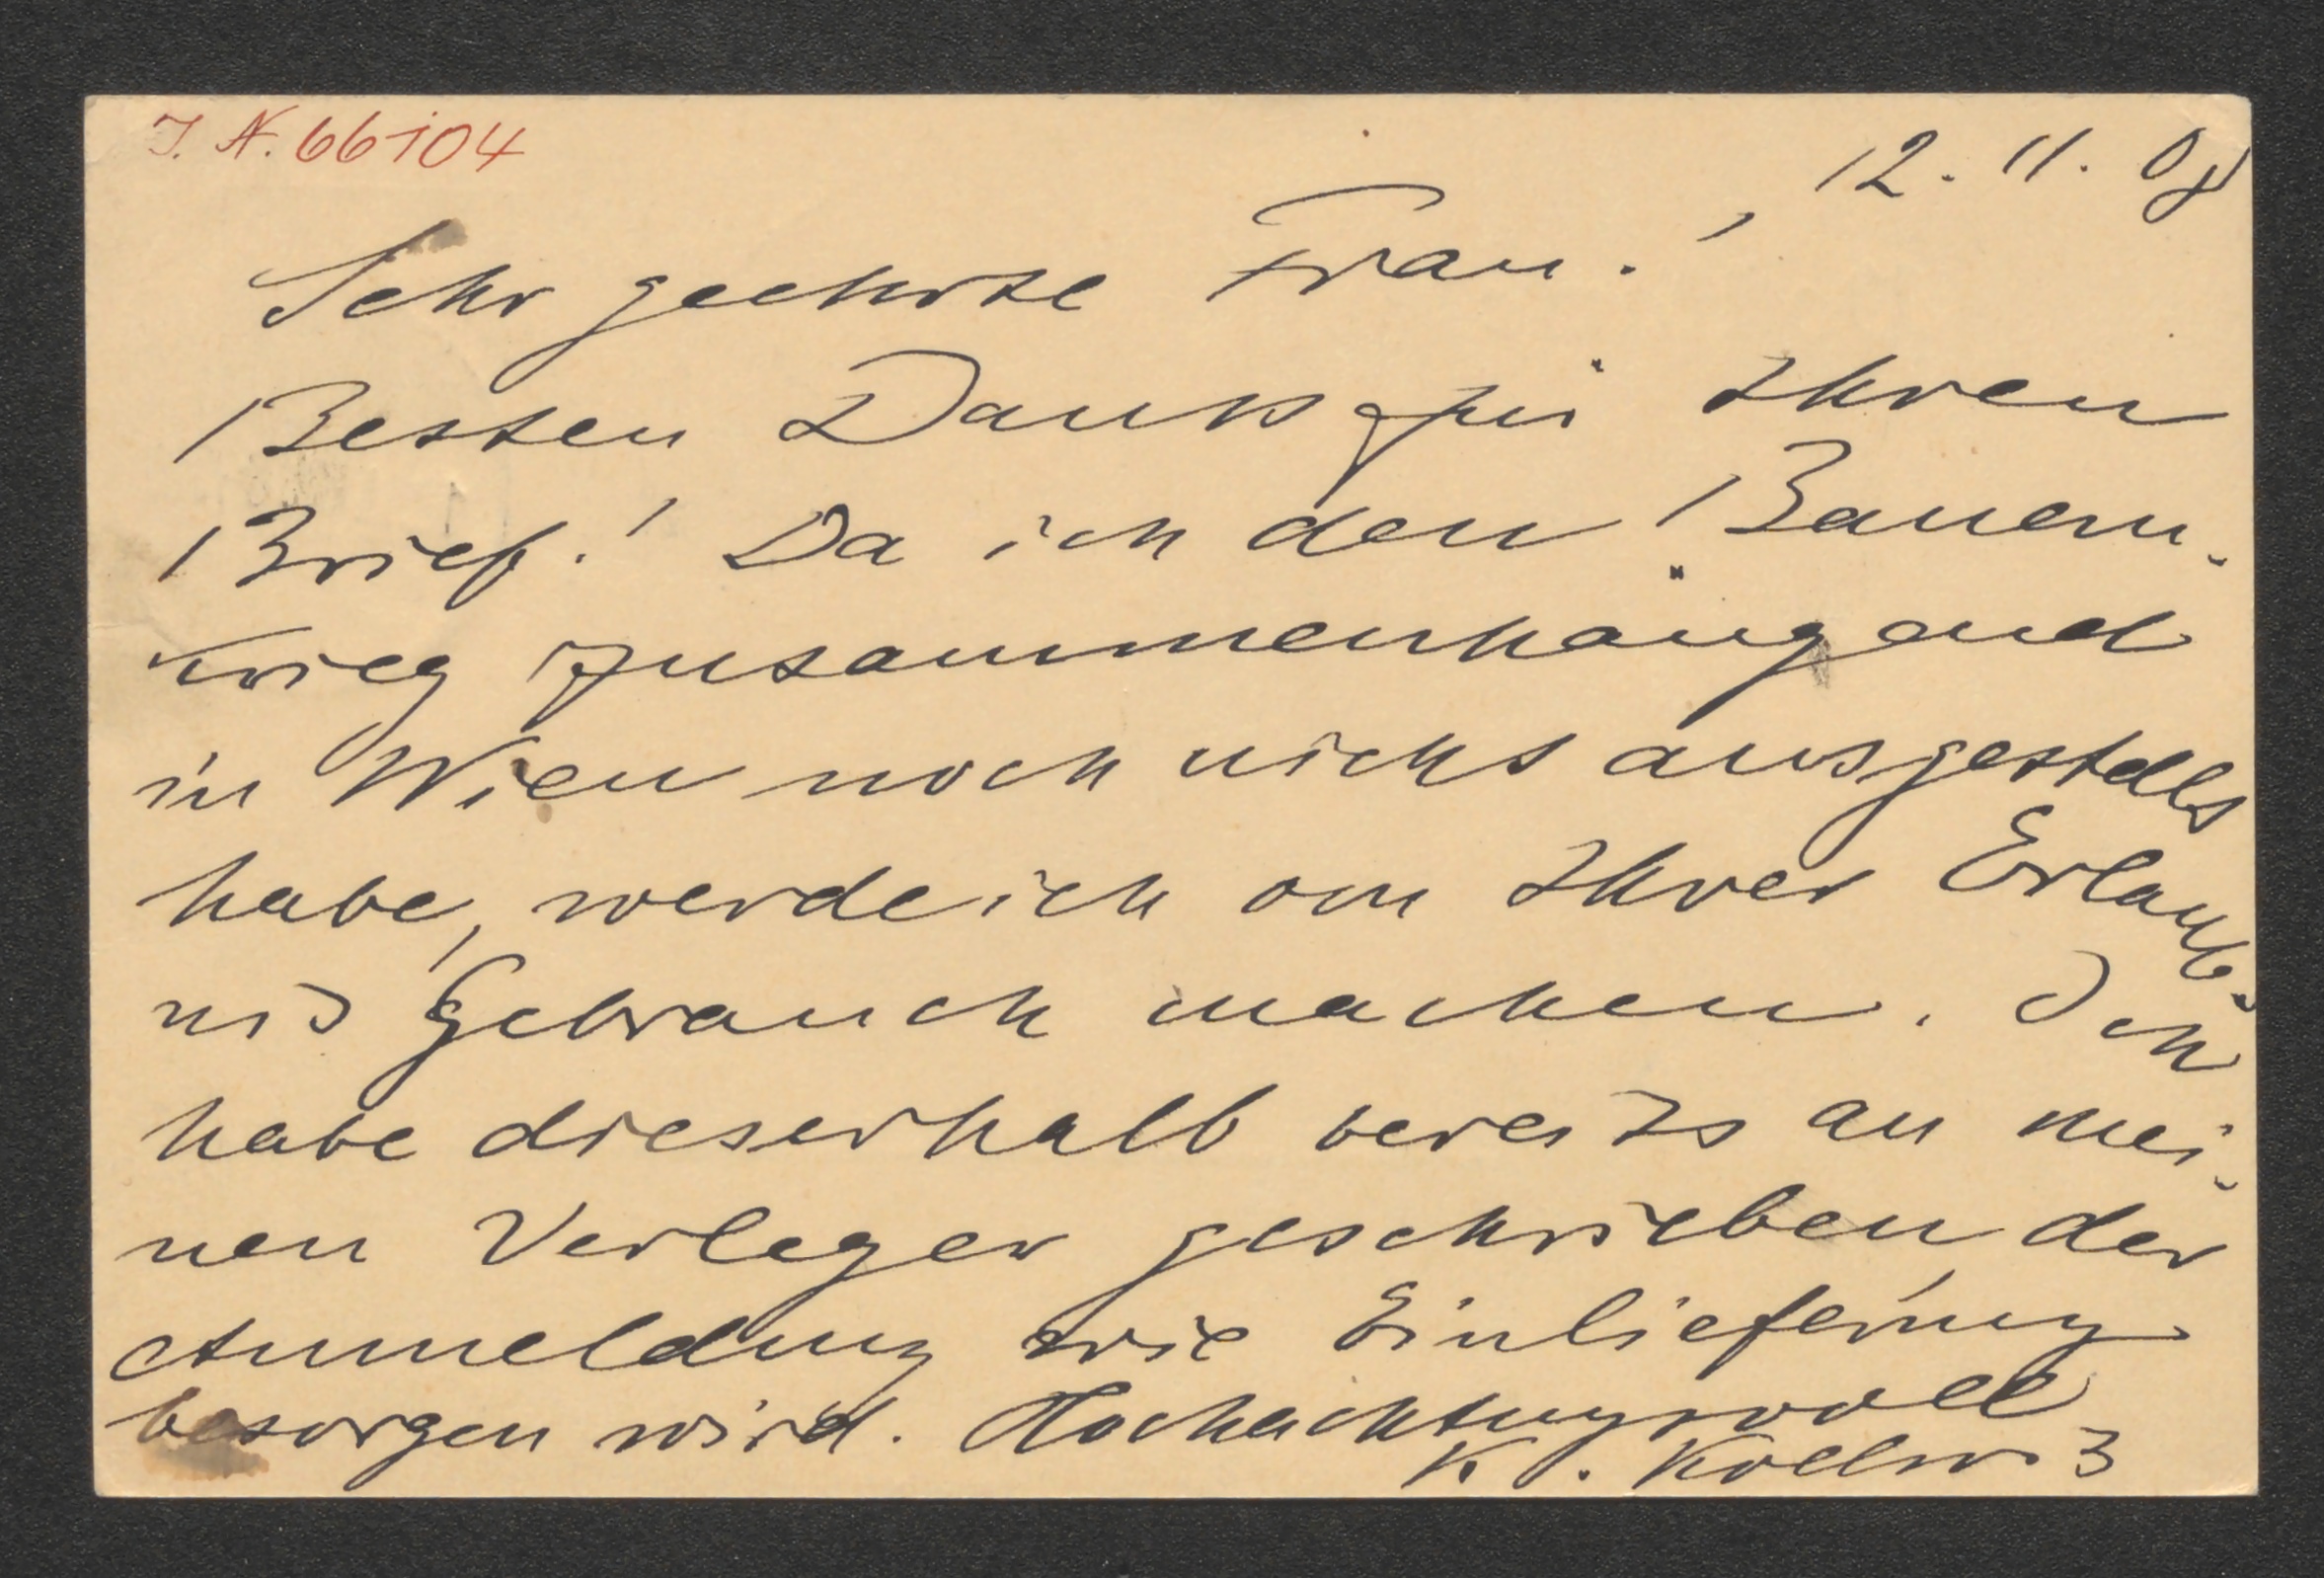 J. N. 66104
12. 11. 08
Sehr geehrte Frau!
Besten Dank für Ihren
Brief! Da ich den Bauern-
krieg zusammenhängend
in Wien noch nicht ausgestellt
habe, werde ich von Ihrer Erlaub-
nis Gebrauch machen. Ich
habe dieserhalb bereits an mei-
nen Verleger geschrieben, der
Anmeldung wie Einlieferung
besorgen wird. Hochachtungsvoll
K. Kollwitz